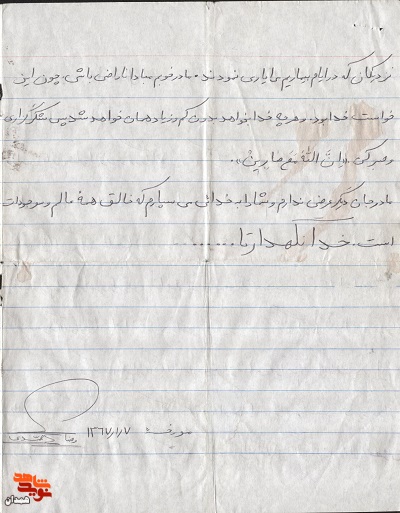 نزدیکانی که در ایام بیماریم مرا یاری نمودند. مادر خوبم مبادا ناراضی باشی، چون این
خواست خدا بود. و هرچه خدا بخواهد بدون کم و زیاد همان خواهد شد پس شکرگزاری
و صبر کن، «ان الله مع صابرین».
مادر جان دیگر عرضی ندارم و شما را به خدائی می سپارم که خالق همهٔ عالم و موجودات
است. خدا نگهدار تا......
مورخه ۱۳۶۷/۱/۷ رضا
شاهد
نوید